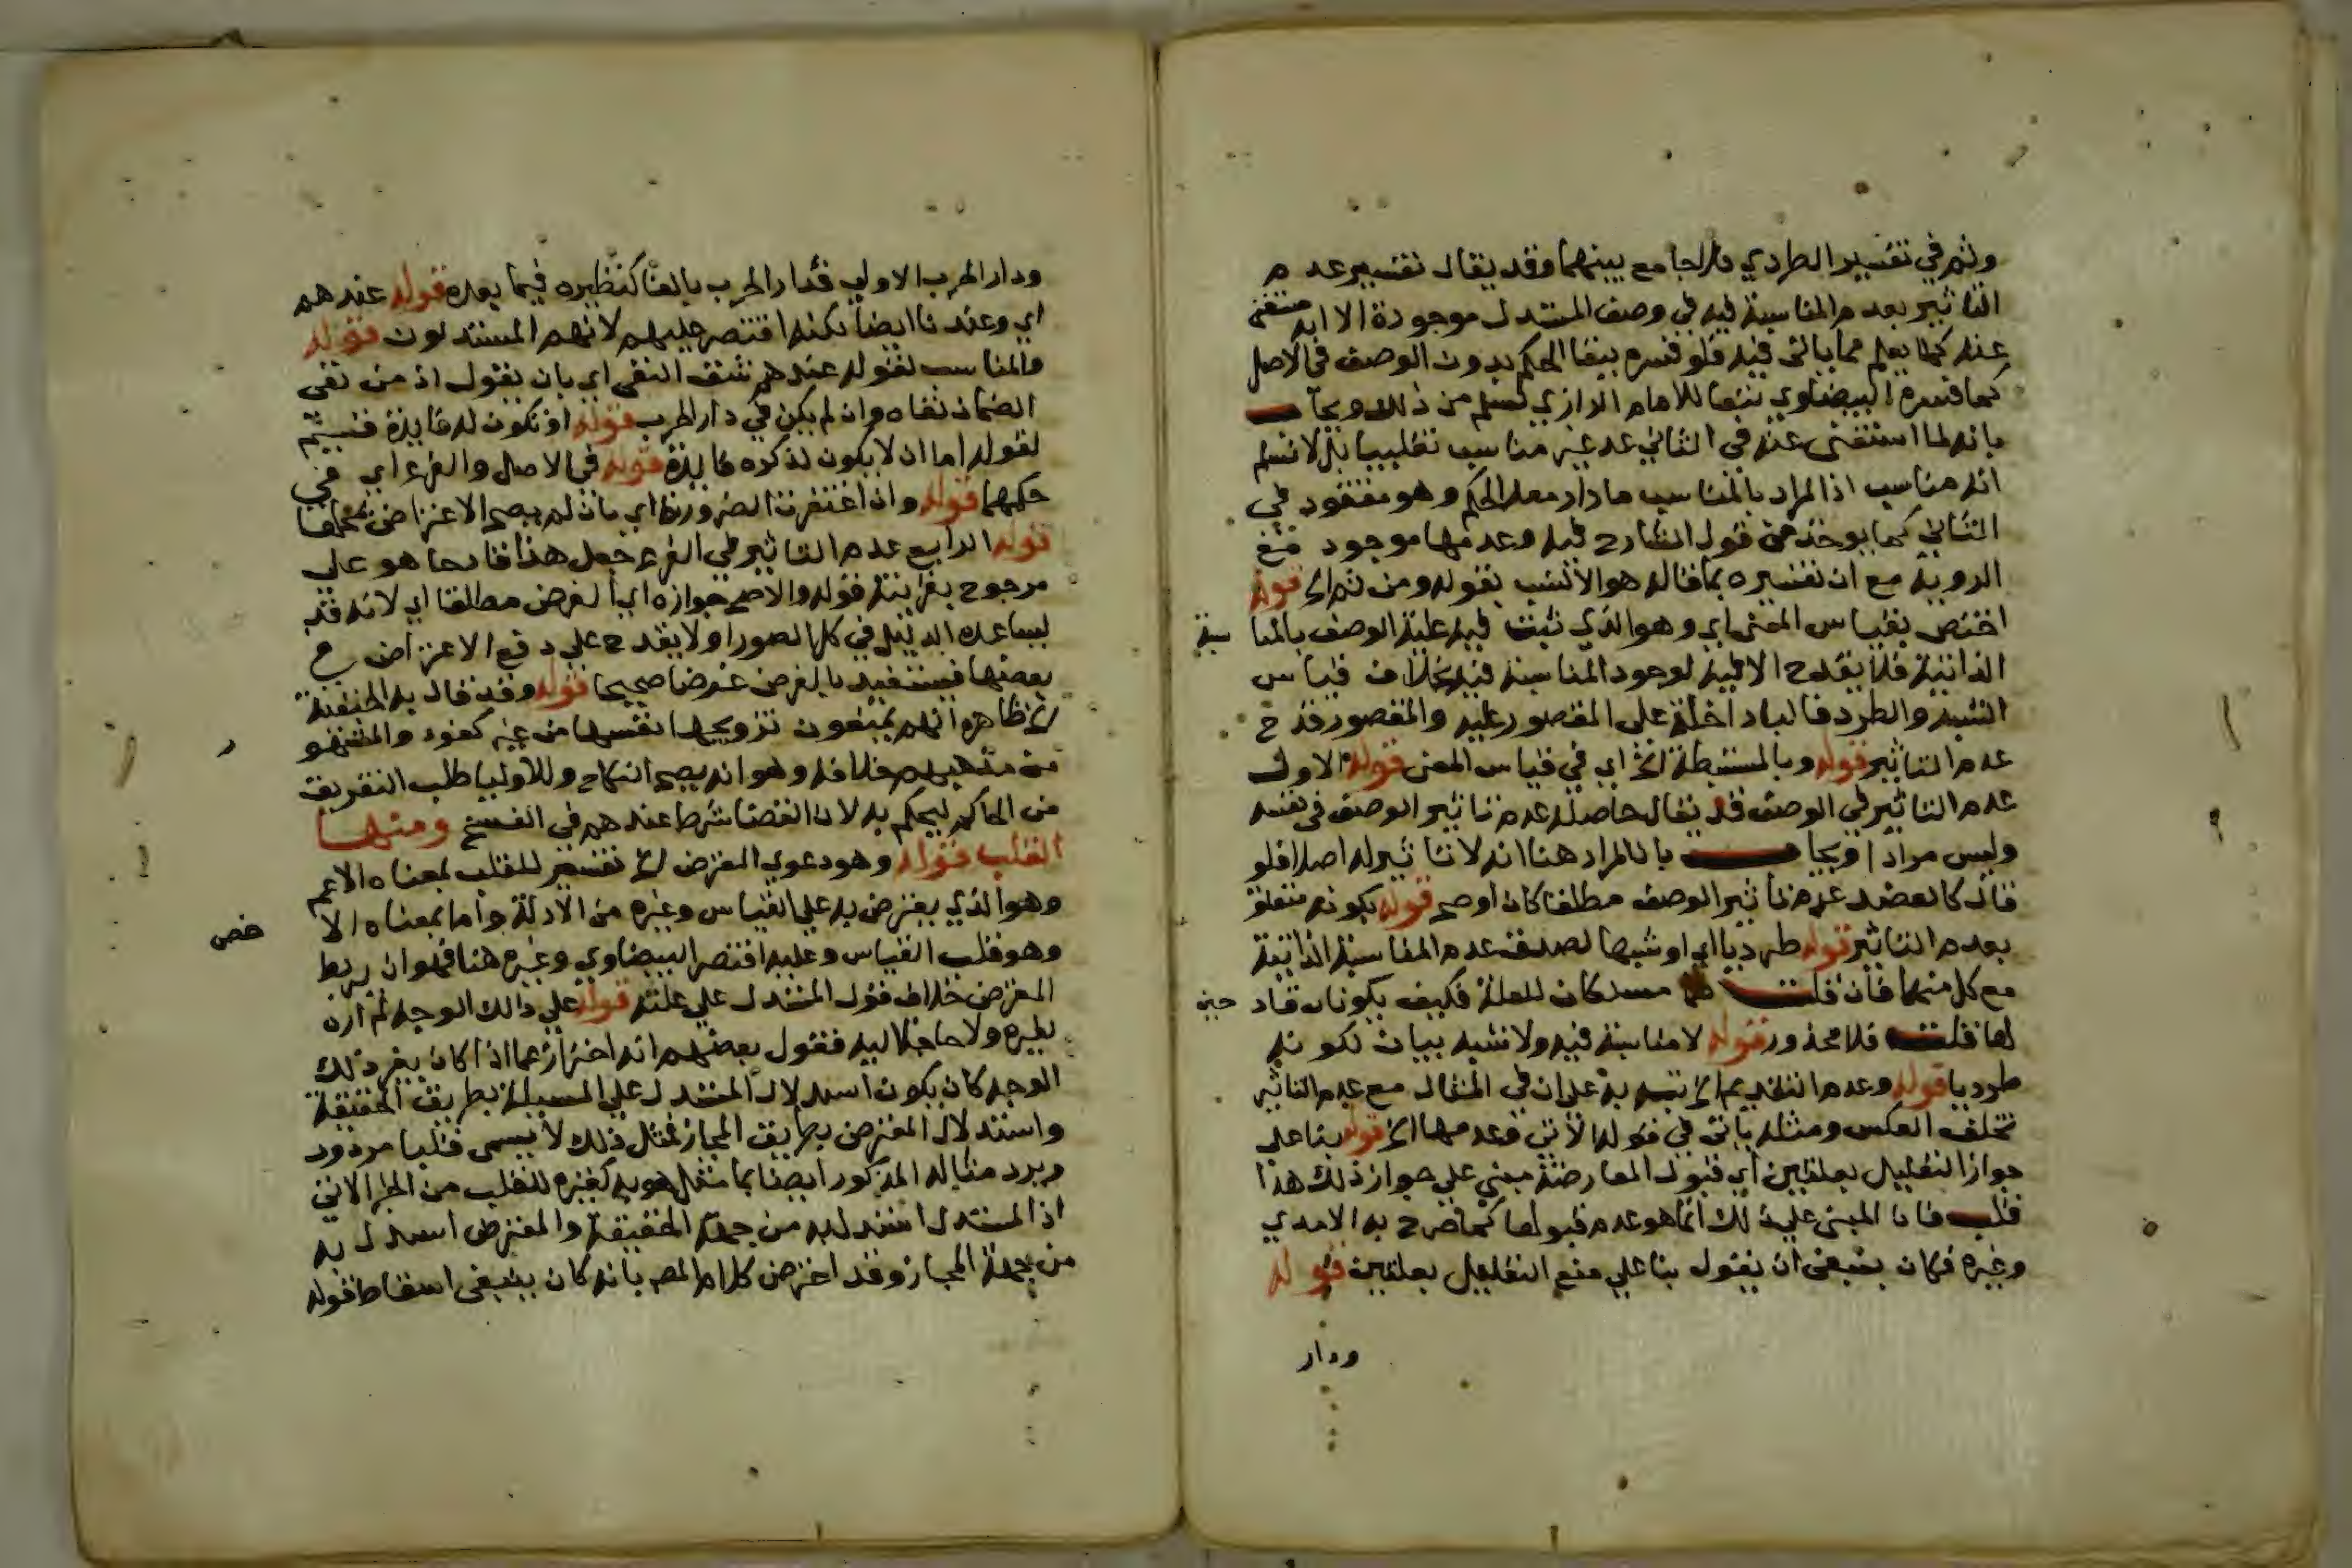 وثم في تفسير الطردي فالجامع بينهما وقد يقال تفسير عدم
التاثير بعدم المناسبة فيه في وصف المستدل موجودة الا انه مستغنى
عنه كما يعلم مما ياتى فيه فلو فسره ببقا الحكم بدون الوصف في الاصل
كما فسره البيضاوي تبعا للامام الرازي لسلم من ذلك ويجاب
بانه لما استغنى عنه في الثاني عد غير مناسب تغليبا بل لا نسلم
انه مناسب اذ المراد بالمناسب ما دار معه الحكم وهو مفقود في
الثاني كما يوخذ من قول الشارح فيه وعدمها موجود مع
الروية مع ان تفسيره بما قاله هو الانسب بقوله ومن ثم الخ قوله
اختص بقياس المعنى اي وهو الذي ثبت فيه علية الوصف بالمنا سبة
الذاتية فلا يقدح الا فيه لوجود المناسبة فيه بخلاف قياس
الشبه والطرد فالباد اخلة على المقصور عليه والمقصور قدح
عدم التاثير قوله وبالمستنبطة الخ اي في قياس المعنى قوله الاول
عدم التاثير في الوصف قد يقال حاصله عدم تاثير الوصف في نفسه
وليس مرادا ويجاب بان المراد هنا انه لا تاثير له اصلا فلو
قال كالعضد عدم تاثير الوصف مطلقا كان اوضح قوله بكونه متعلق
بعدم التاثير قوله طرديا اي او شبها لصدق عدم المناسبة الذاتية
مع كل منهما فان قلت هما مسلكان للعلة فكيف يكونان قاد حين
لها قلت فلا محذور قوله لا مناسبة فيه ولا شبه بيان لكونه
طرديا قوله وعدم التقديم الخ نبه به على ان في المثال مع عدم التاثير
تخلف العكس ومثله ياتى في قوله الآتي وعدمها الخ قوله بنا على
جواز التعليل بعلتين اي قبول المعارضة مبني على جواز ذلك هذا
قلب فان المبني على ذلك انما هو عدم قبولها كما صرح به الامدي
وغيره فكان ينبغي ان يقول بنا على منع التعليل بعلتين قوله
ودار
ودار الحرب الاولى فدار الحرب بالفا كنظيره فيما بعده قوله عندهم
اي وعندنا ايضا لكنه اقتصر عليهم لانهم المستدلون قوله
والمناسب لقوله عندهم شق النفى اي بان يقول اذ من نفى
الضمان نفاه وان لم يكن في دار الحرب قوله او تكون له فايدة قسيم
لقوله اما ان لا يكون لذكره فايدة قوله في الاصل والفرع اي في
حكمهما قوله وان اغتفرت الضرورية اي بان لم يصح الاعتراض بمحلها
قوله الرابع عدم التاثير في الفرع جعل هذا قادحا هو على
مرجوح بقرينة قوله والاصح جوازه اي الفرض مطلقا اي لانه قد
لا يساعده الدليل في كل الصور او لا يقدح على دفع الاعتراض ع
بعضها فيستفيد بالفرض غرضا صحيحا قوله وقد قال به الحنفية
الخ ظاهره انهم يمنعون تزويجها نفسها من غير كفو والمشهو ر
من مذهبهم خلافه وهو انه يصح النكاح وللاوليا طلب التفريق
من الحاكم ليحكم به لان القضا شرط عندهم في الفسخ ومنها
القلب قوله وهو دعوى المعترض الخ تفسير للقلب بمعناه الاعم
وهو الذي يعترض به على القياس وغيره من الادلة واما بمعناه الا خص
وهو قلب القياس وعليه اقتصر البيضاوي وغيره هنا فهو ان ربط
المعترض خلاف قول المستدل على علته قوله على ذلك الوجه لم اره
لغيره ولا حاجة اليه فقول بعضهم انه احتراز عما اذا كان بغير ذلك
الوجه كان يكون استدلال المستدل على المسيلة بطريق الحقيقة
واستدلال المعترض بطريق المجاز فمثل ذلك لا يسمى قلبا مردود
ويرد مثاله المذكور ايضا بما مثل هو به كغيره للقلب من الخبر الاتي
اذ المستدل استدل به من جهة الحقيقة والمعترض استدل به
من جهة المجاز وقد اعترض كلام المص بانه كان ينبغي اسقاط قوله